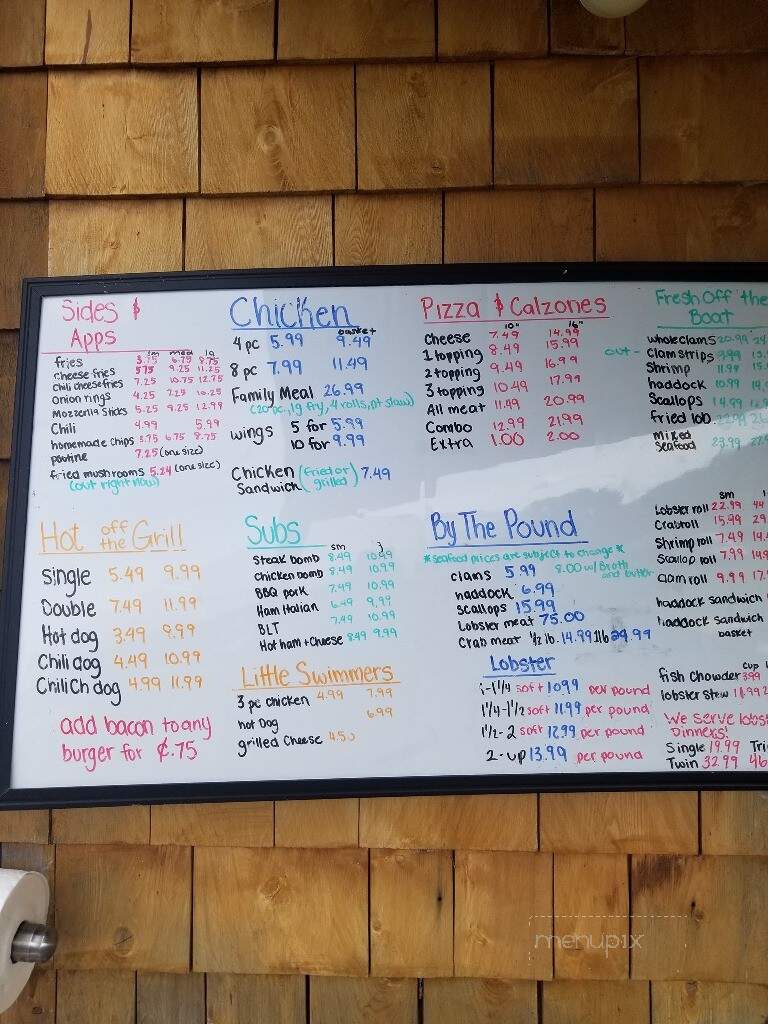 Sides &
Apps
sm med lg
fries 3.75 6.75 8.75
cheese fries 5.75 9.25 11.25
chili cheese fries 7.25 10.75 12.75
onion rings 4.25 7.25 10.25
Mozzerlla Sticks 5.25 9.25 12.99
Chili 4.99 5.99
homemade chips 3.75 6.75 8.75
poutine 7.25 (one size)
fried mushrooms 5.24 (one size)
(out right now)
Chicken
basket
4 pc 5.99 9.49
8 pc 7.99 11.49
Family Meal 26.99
(20 pc., lg fry, 4 rolls, pt slaw)
wings 5 for 5.99
10 for 9.99
Chicken (fried or 7.49
Sandwich grilled)
Pizza & Calzones
10" 16"
Cheese 7.49 14.99
1 topping 8.49 15.99
2 topping 9.49 16.99
3 topping 10.49 17.99
All meat 11.49 20.99
Combo 12.99 21.99
Extra 1.00 2.00
Fresh Off the
Boat
whole clams 20.99
out - Clam strips
Shrimp 11.99
haddock 10.99
Scallops 14.99
fried lob
Mixed
Seafood 23.99
Hot off the Grill
Single 5.49 9.99
Double 7.49 11.99
Hot dog 3.49 9.99
Chili dog 4.49 10.99
Chili Ch dog 4.99 11.99
add bacon to any
burger for ¢.75
Subs
sm
Steak bomb 8.49 10.99
Chicken bomb 8.49 10.99
BBQ pork 7.49 10.99
Ham Italian 6.49 9.99
BLT 7.49 10.99
Hot ham + Cheese 8.49 9.99
Little Swimmers
3 pc chicken 4.99 7.99
hot Dog 6.99
grilled Cheese 4.50
By The Pound
* seafood prices are subject to change *
clams 5.99 8.00 w/ Broth and butter
haddock 6.99
Scallops 15.99
Lobster meat 75.00
Crab meat 1/2 lb. 14.99 1lb 24.99
Lobster
1-1 1/4 soft 10.99 per pound
1 1/4-1 1/2 soft 11.99 per pound
1 1/2-2 soft 12.99 per pound
2-up 13.99 per pound
sm
Lobster roll 22.99 44
Crab roll 15.99 29
Shrimp roll 7.49 14.
Scallop roll 7.99 14.9
clam roll 9.99 17.
haddock sandwich
haddock sandwich
basket
cup
fish chowder 3.99
lobster stew 11.99
We serve lobst
Dinners!
Single 19.99 Tri
Twin 32.99 46
menupix